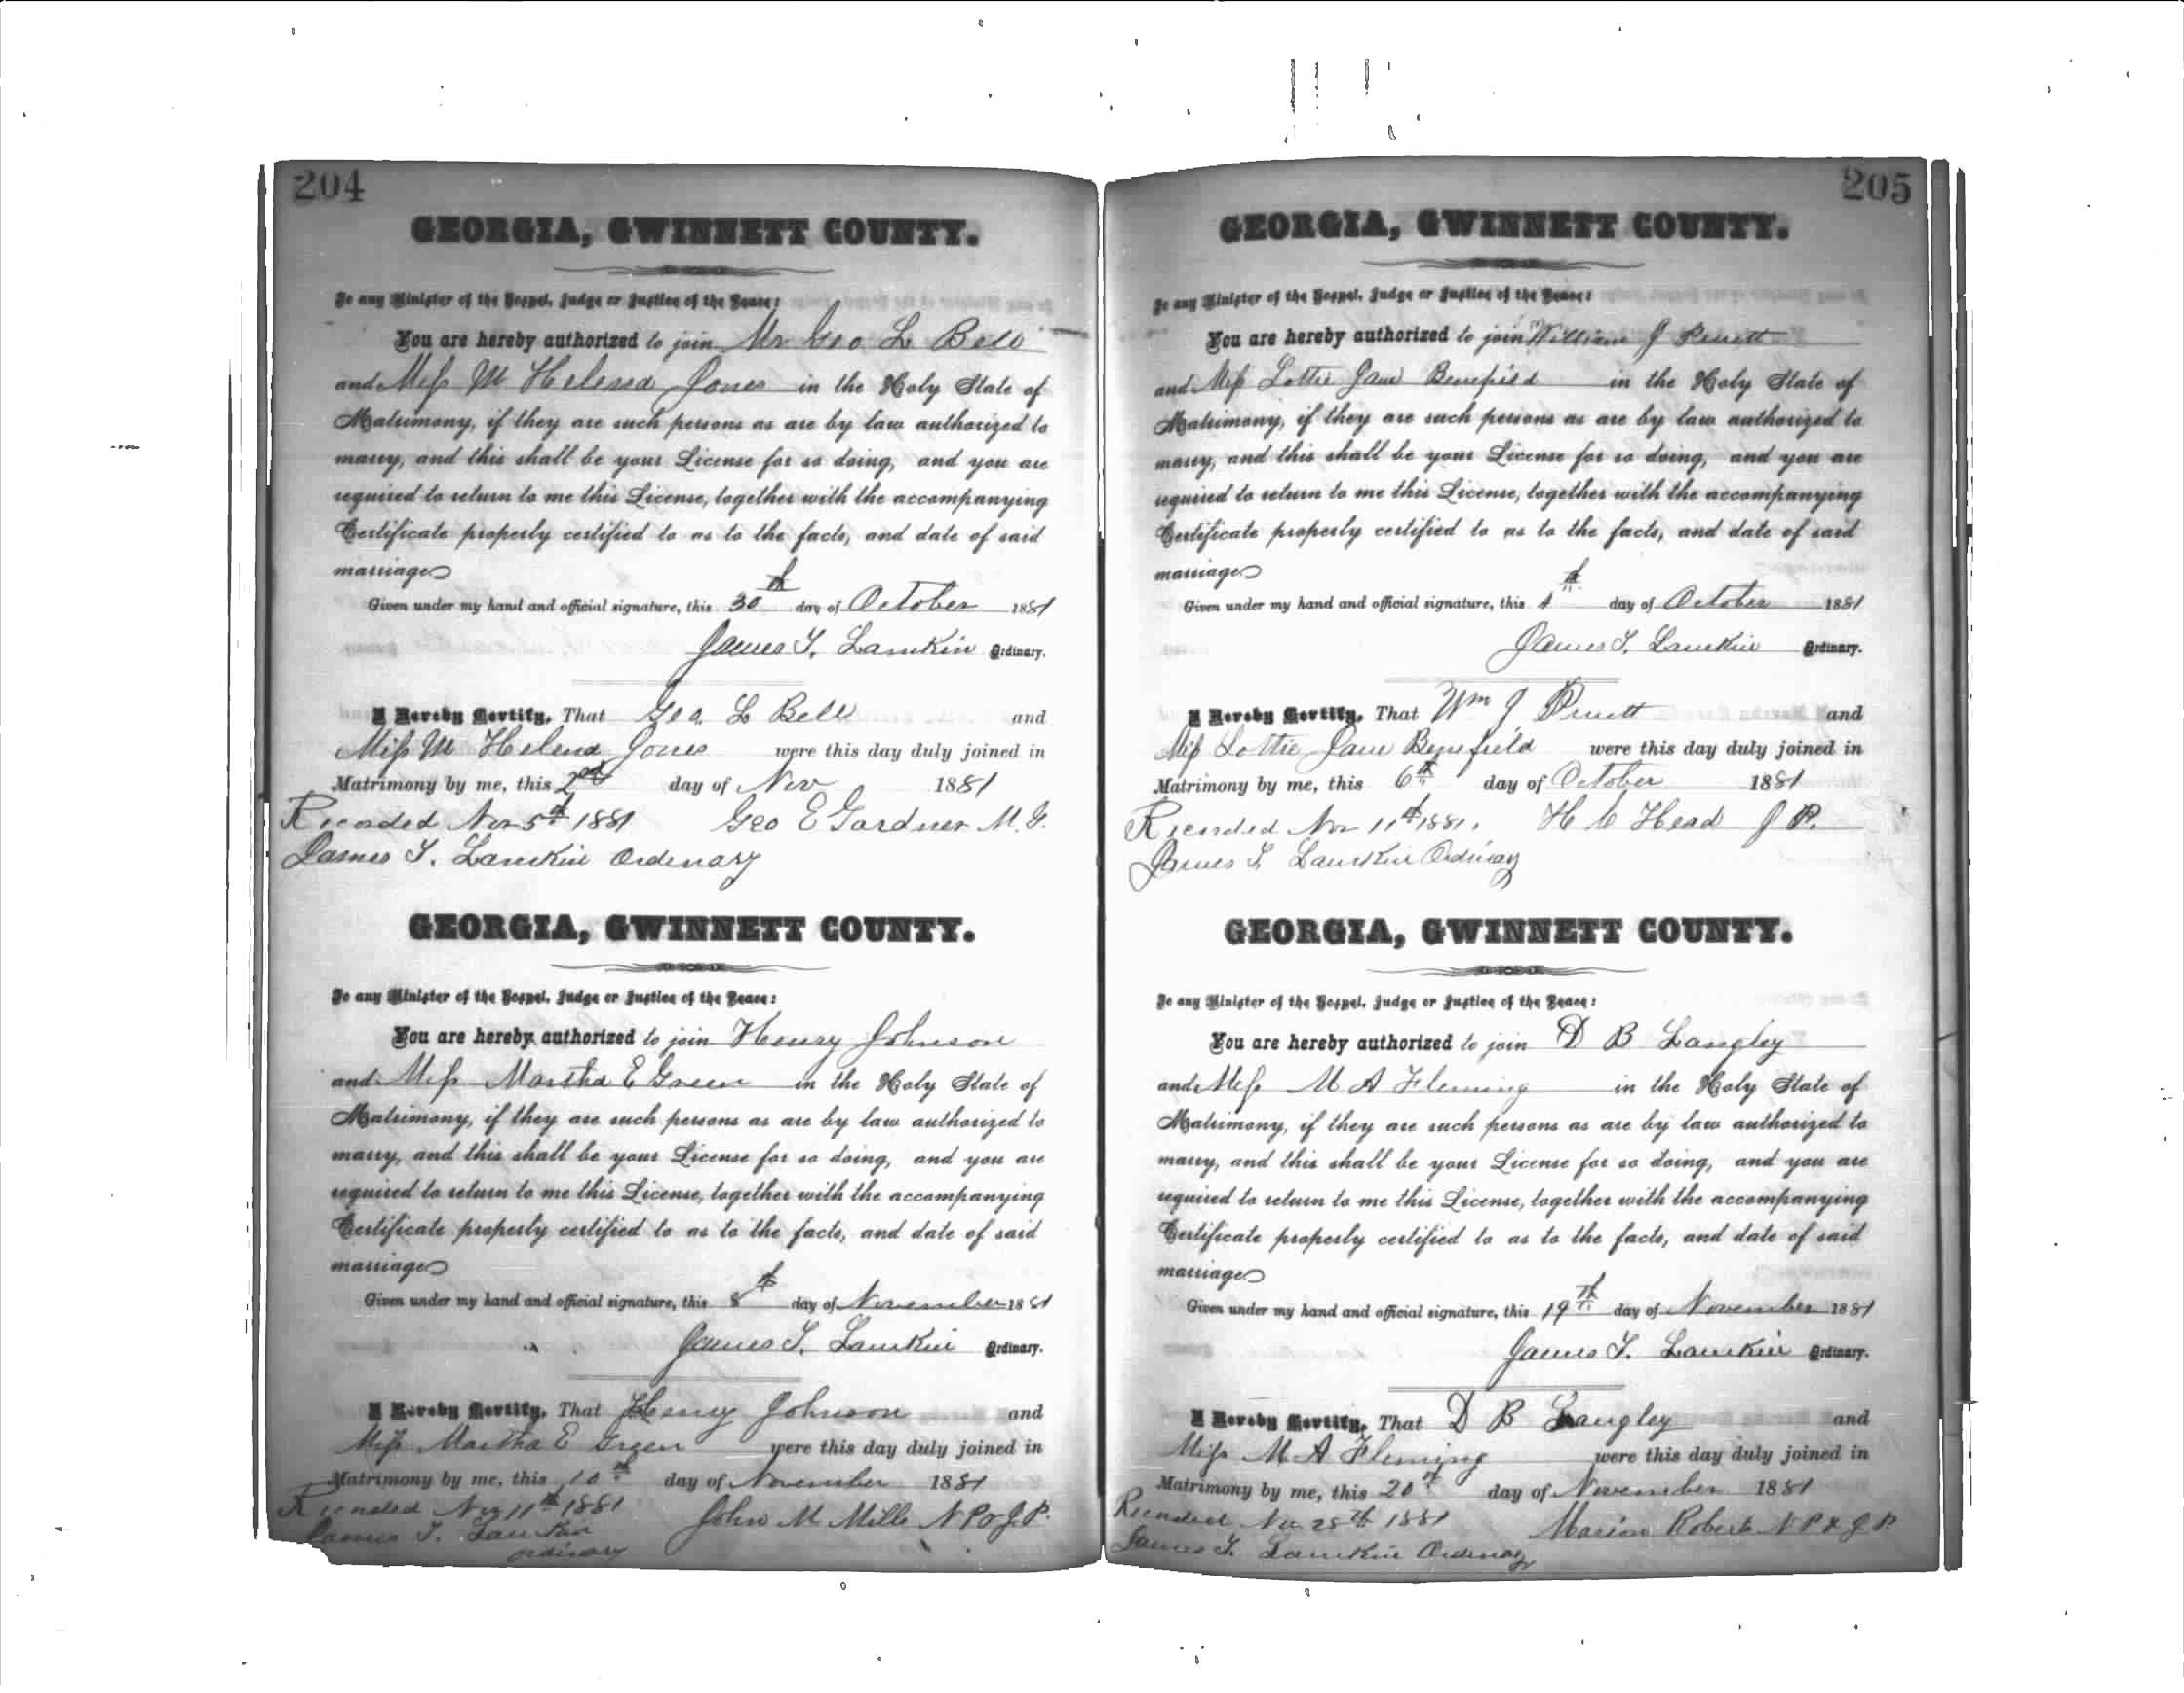 204
GEORGIA, GWINNETT COUNTY.
To any Minister of the Gospel, Judge or Justice of the Peace:
You are hereby authorized to join Mr Geo L Bell
and Miss M Helena Jones in the Holy State of
Matrimony, if they are such persons as are by law authorized to
marry, and this shall be your License for so doing, and you are
required to return to me this License, together with the accompanying
Certificate properly certified to as to the facts, and date of said
marriage
Given under my hand and official signature, this 30th day of October 1881
James T. Lamkin Ordinary.
I Hereby Certify, That Geo. L Bell and
Miss M Helena Jones were this day duly joined in
Matrimony by me, this 2nd day of Nov 1881
Recorded Nov 5th 1881 Geo E Gardner M. G.
James T. Lamkin Ordenary
GEORGIA, GWINNETT COUNTY.
To any Minister of the Gospel, Judge or Justice of the Peace:
You are hereby authorized to join Henry Johnson
and Miss Martha E Green in the Holy State of
Matrimony, if they are such persons as are by law authorized to
marry, and this shall be your License for so doing, and you are
required to return to me this License, together with the accompanying
Certificate properly certified to as to the facts, and date of said
marriage
Given under my hand and official signature, this 8th day of November 1881
James T. Lamkin Ordinary.
I Hereby Certify, That Henry Johnson and
Miss Martha E Green were this day duly joined in
Matrimony by me, this 10th day of November 1881
Recorded Nov 11th 1881 John M Mills N P & J. P.
James T. Lamkin
ordinary
205
GEORGIA, GWINNETT COUNTY.
To any Minister of the Gospel, Judge or Justice of the Peace:
You are hereby authorized to join William J Pruett
and Miss Lottie Jane Benefield in the Holy State of
Matrimony, if they are such persons as are by law authorized to
marry, and this shall be your License for so doing, and you are
required to return to me this License, together with the accompanying
Certificate properly certified to as to the facts, and date of said
marriage
Given under my hand and official signature, this th day of October 1881
James T. Lamkin Ordinary.
I Hereby Certify, That Wm J Pruett and
Miss Lottie Jane Benefield were this day duly joined in
Matrimony by me, this 6th day of October 1881
Recorded Nov 11th 1881. H C Head J P.
James T. Lamkin Ordinary
GEORGIA, GWINNETT COUNTY.
To any Minister of the Gospel, Judge or Justice of the Peace:
You are hereby authorized to join D B Langley
and Miss M A Fleming in the Holy State of
Matrimony, if they are such persons as are by law authorized to
marry, and this shall be your License for so doing, and you are
required to return to me this License, together with the accompanying
Certificate properly certified to as to the facts, and date of said
marriage
Given under my hand and official signature, this 19th day of November 1881
James T. Lamkin Ordinary.
I Hereby Certify, That D B Langley and
Miss M A Fleming were this day duly joined in
Matrimony by me, this 20th day of November 1881
Recorded Nov 28th 1881 Marion Roberts N P & J P
James T. Lamkin Ordinary